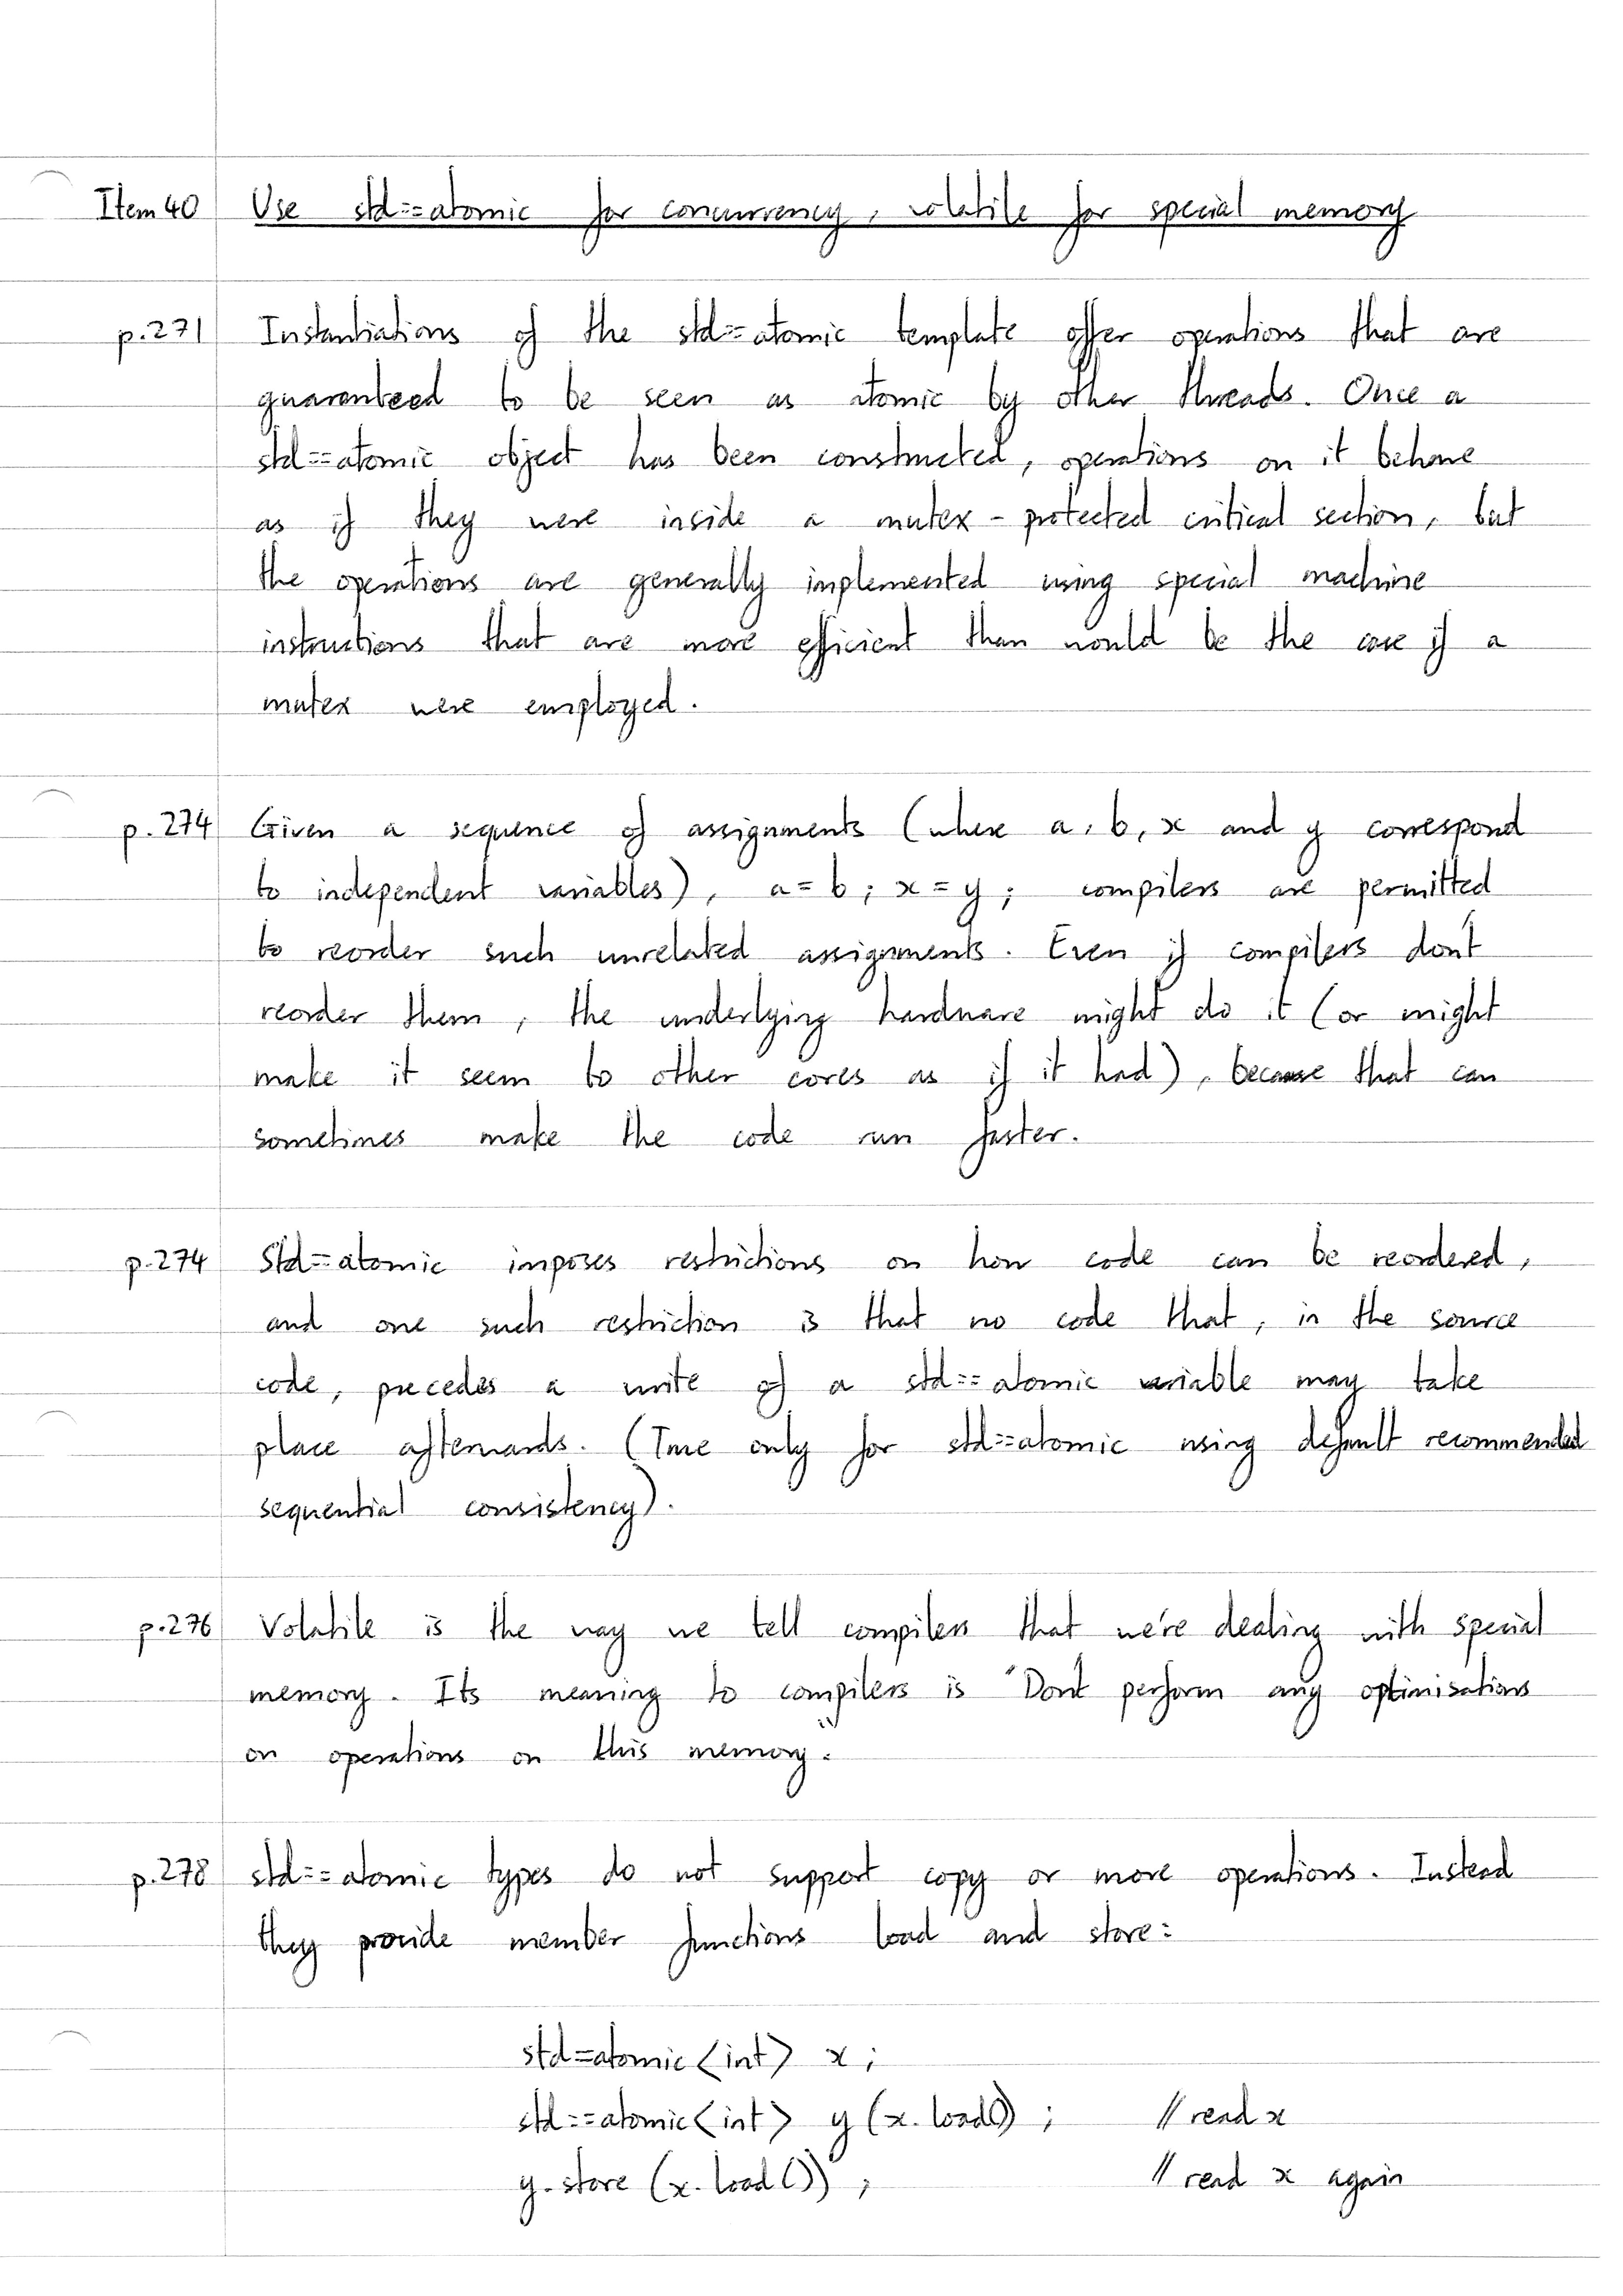 Item 40 Use std::atomic for concurrency, volatile for special memory
p.271 Instantiations of the std::atomic template offer operations that are
guaranteed to be seen as atomic by other threads. Once a
std::atomic object has been constructed, operations on it behave
as if they were inside a mutex-protected critical section, but
the operations are generally implemented using special machine
instructions that are more efficient than would be the case if a
mutex were employed.
p.274 Given a sequence of assignments (where a, b, x and y correspond
to independent variables), a = b; x = y; compilers are permitted
to reorder such unrelated assignments. Even if compilers don't
reorder them, the underlying hardware might do it (or might
make it seem to other cores as if it had), because that can
sometimes make the code run faster.
p.274 Std::atomic imposes restrictions on how code can be reordered,
and one such restriction is that no code that, in the source
code, precedes a write of a std::atomic variable may take
place afterwards. (True only for std::atomic using default recommended
sequential consistency).
p.276 Volatile is the way we tell compilers that we're dealing with special
memory. Its meaning to compilers is "Don't perform any optimisations
on operations on this memory."
p.278 std::atomic types do not support copy or move operations. Instead
they provide member functions load and store:
std::atomic<int> x;
std::atomic<int> y (x.load()); // read x
y.store (x.load()); // read x again